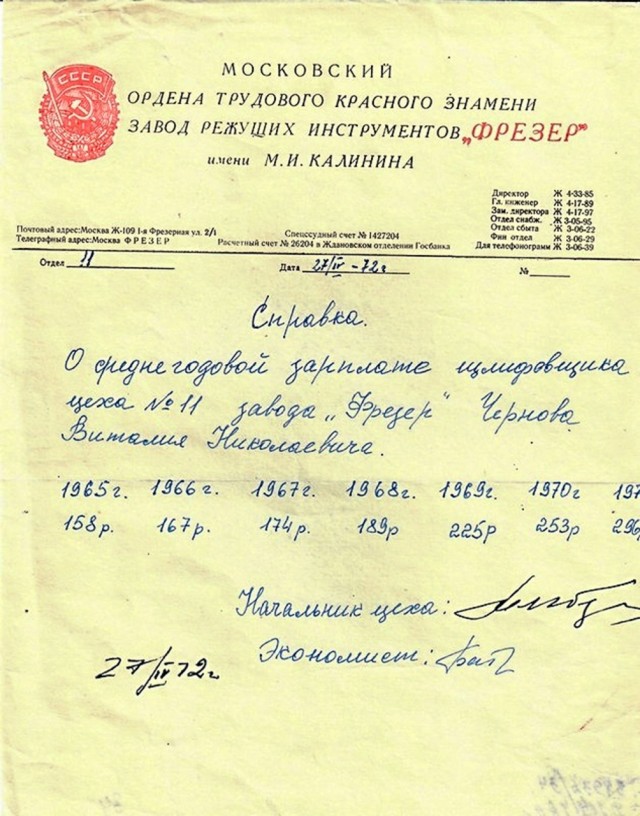 СССР
МОСКОВСКИЙ
ОРДЕНА ТРУДОВОГО КРАСНОГО ЗНАМЕНИ
ЗАВОД РЕЖУЩИХ ИНСТРУМЕНТОВ „ФРЕЗЕР"
имени М.И. КАЛИНИНА
Директор Ж 4-33-85
Гл. инженер Ж 4-17-89
Зам. директора Ж 4-17-97
Отдел снабж. Ж 3-05-95
Отдел сбыта Ж 3-06-22
Фин отдел Ж 3-06-29
Для телефонограмм Ж 3-06-39
Почтовый адрес: Москва Ж-109 1-я Фрезерная ул. 2/1 Спецссудный счет № 1427204
Телеграфный адрес: Москва ФРЕЗЕР Расчетный счет № 26204 в Ждановском отделении Госбанка
Отдел 11 Дата 27/IV-72г. №
Справка.
О среднегодовой зарплате шлифовщика
цеха № 11 завода „Фрезер" Чернова
Виталия Николаевича.
1965г. 1966г. 1967г. 1968г. 1969г. 1970г 197
158р. 167р. 174р. 189р 225р 253р 296
Начальник цеха:
Экономист:
27/IV 72г